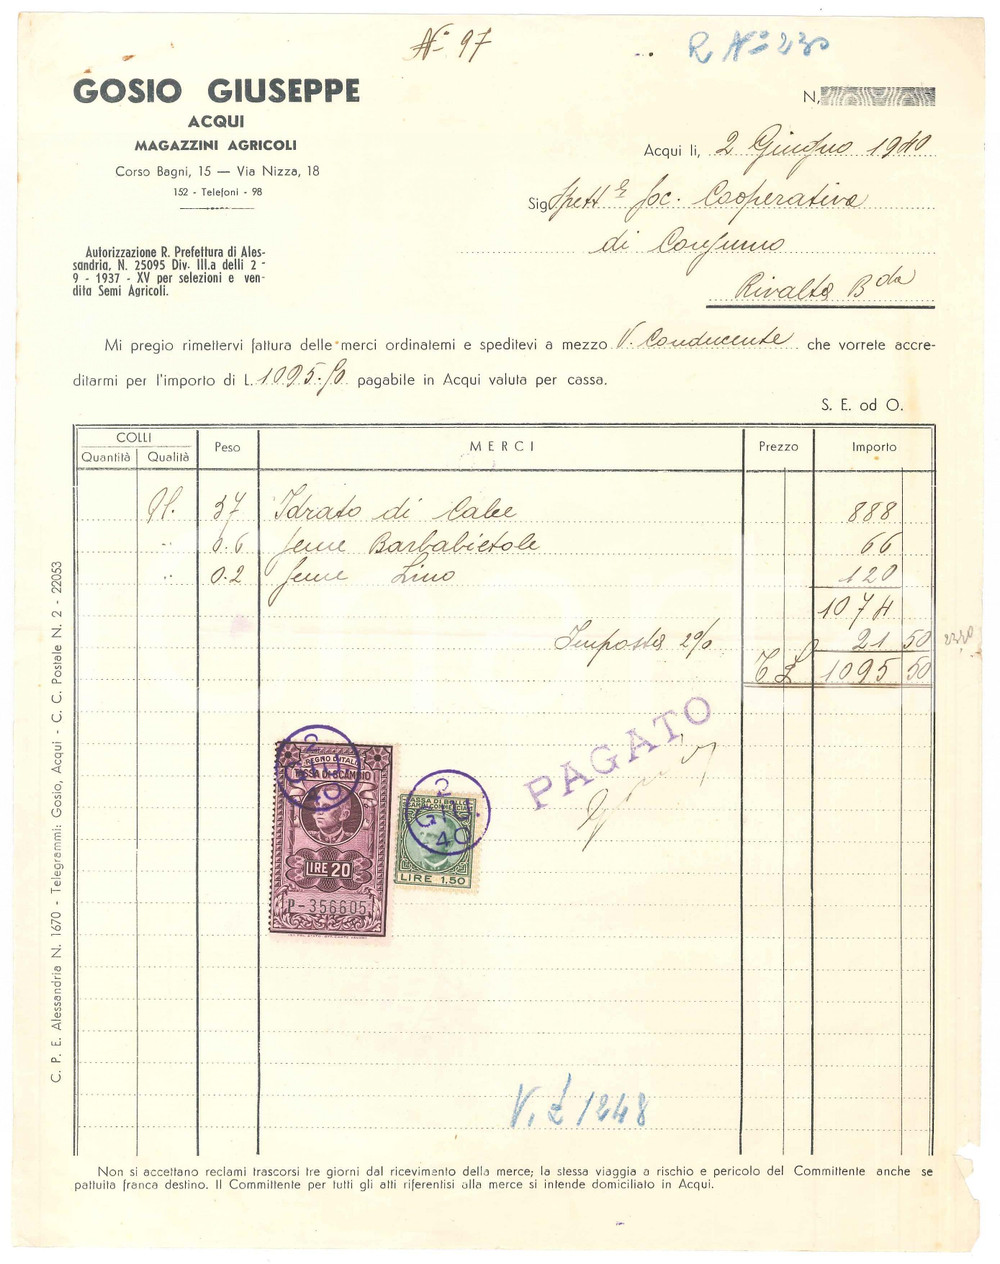 N° 97
R N° 230
GOSIO GIUSEPPE
ACQUI
MAGAZZINI AGRICOLI
Corso Bagni, 15 — Via Nizza, 18
152 - Telefoni - 98
N.
Acqui li, 2 Giugno 1940
Sig. Spett.e Soc. Cooperativa
di Consumo
Rivalta B.da
Autorizzazione R. Prefettura di Ales-
sandria, N. 25095 Div. III.a delli 2 -
9 - 1937 - XV per selezioni e ven-
dita Semi Agricoli.
Mi pregio rimettervi fattura delle merci ordinatemi e speditevi a mezzo V. Conducente che vorrete accre-
ditarmi per l'importo di L. 1095.50 pagabile in Acqui valuta per cassa.
S. E. od O.
COLLI Peso MERCI Prezzo Importo
Quantità Qualità
Ql. 37 Idrato di Calce 888
" 0.6 Seme Barbabietole 66
" 0.2 Seme Lino 120
1074
Imposta 2% 21 50
T L 1095 50
PAGATO
2
GIU.
40
REGNO D'ITALIA
TASSA DI SCAMBIO
LIRE 20
P-356605
2
GIU.
40
TASSA DI BOLLO
LIRE 1.50
V. £ 1248
C. P. E. Alessandria N. 1670 - Telegrammi: Gosio, Acqui - C. C. Postale N. 2 - 22053
Non si accettano reclami trascorsi tre giorni dal ricevimento della merce; la stessa viaggia a rischio e pericolo del Committente anche se
pattuita franca destino. Il Committente per tutti gli atti riferentisi alla merce si intende domiciliato in Acqui.